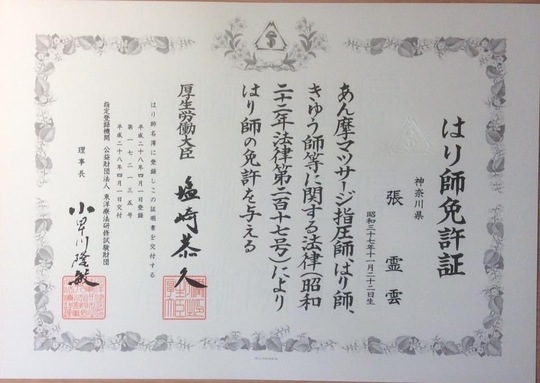 はり師免許証
神奈川県
張 霊 雲
昭和三十七年十一月二十二日生
あん摩マツサージ指圧師、はり師、
きゆう師等に関する法律(昭和
二十二年法律第二百十七号)により
はり師の免許を与える
厚生労働大臣 塩崎恭久
はり師名簿に登録しこの証明書を交付する
平成二十八年四月一日登録
第一七二一三五号
平成二十八年四月一日交付
指定登録機関 公益財団法人 東洋療法研修試験財団
理事長 小早川隆敏